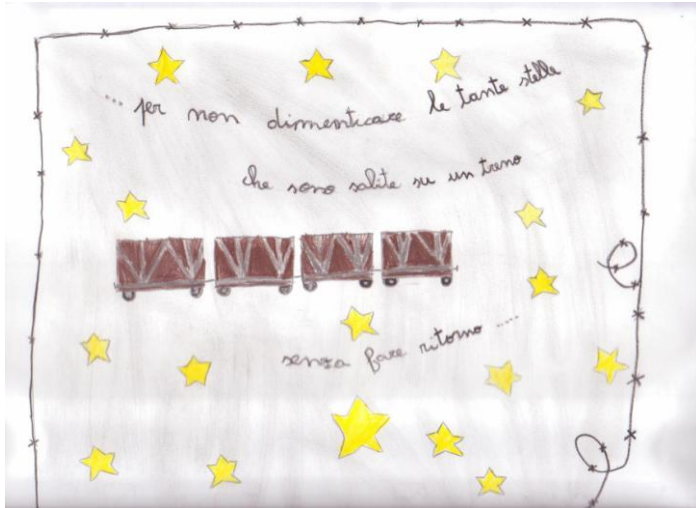 ... per non dimenticare le tante stelle
che sono salite su un treno
senza fare ritorno ....